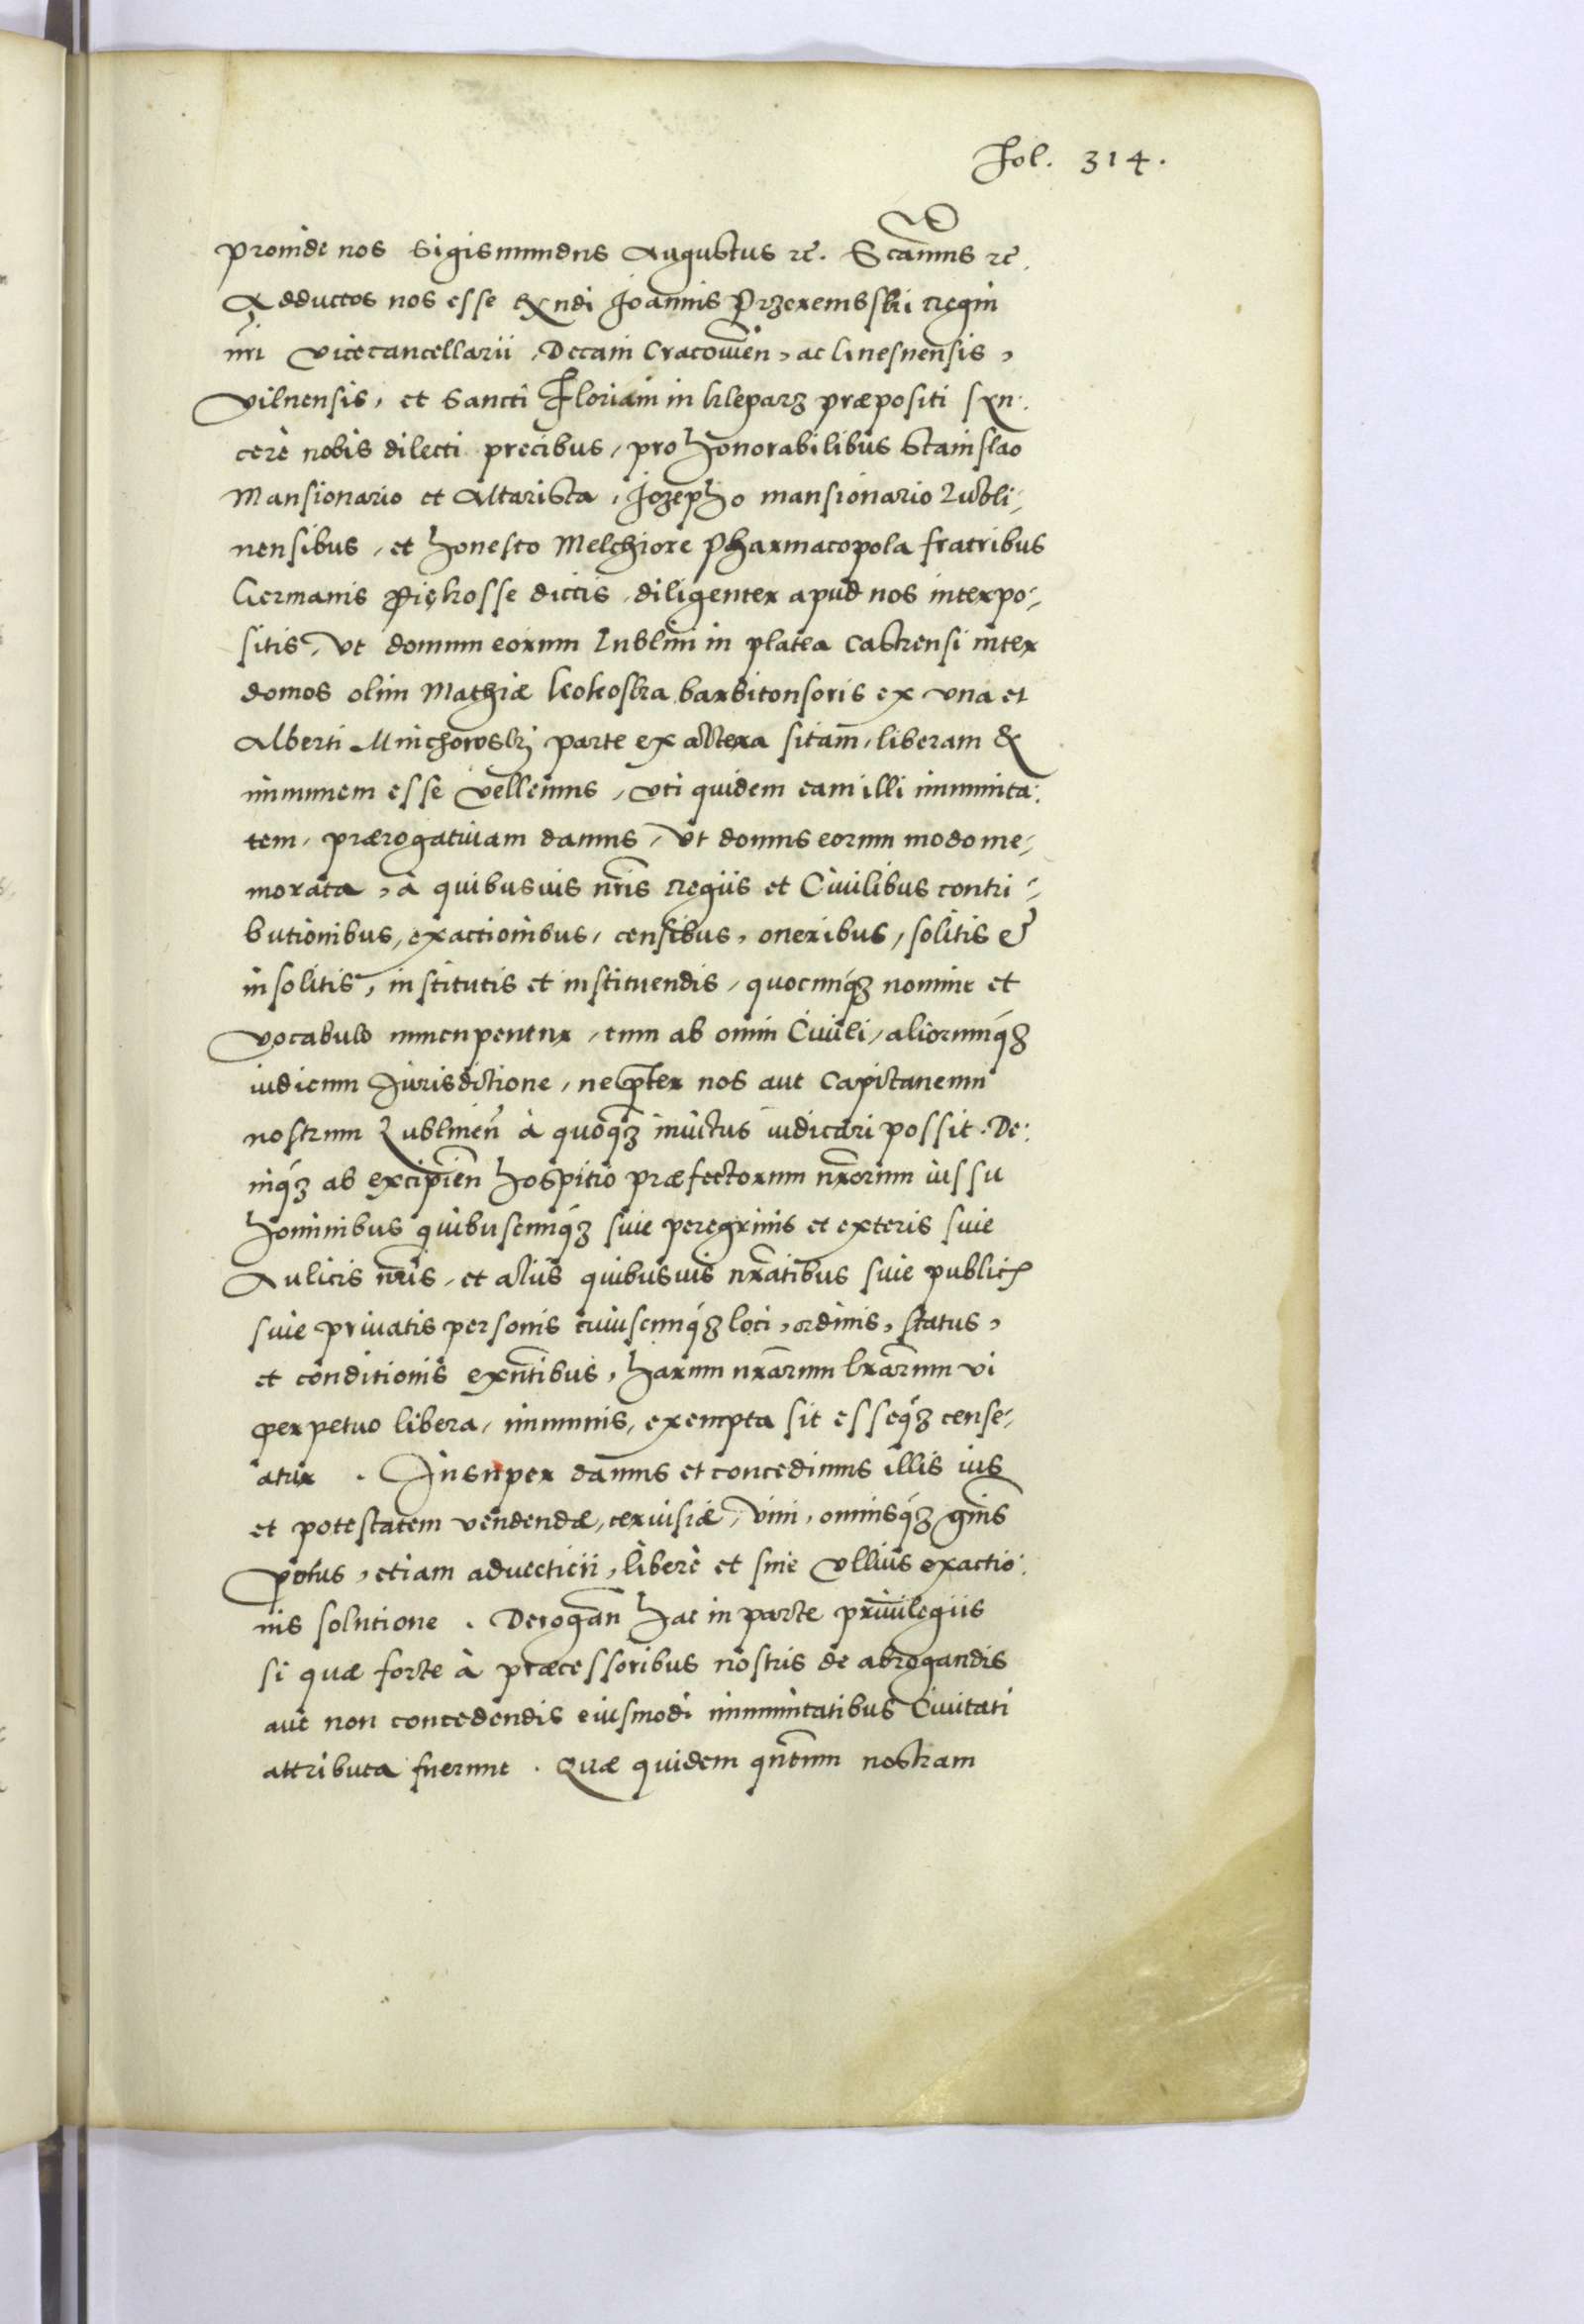 Fol. 314.
Proinde nos Sigismundus Augustus rc. Scāmus rc.
Adductos nos esse Rx̄ndi Joannis Przerembski Regni
nr̄i Vicecancellarii, Decani Cracovień, ac Gnesnensis,
Vilnensis, et Sancti Floriani in Kleparz præpositi syn-
cerè nobis dilecti precibus, pro honorabilibus Stanislao
Mansionario et Altarista, Jozepho mansionario Lubli-
nensibus, et honesto Melchiore Pharmacopola fratribus
Germanis Piękosse dictis, diligenter apud nos interpo-
sitis, Vt domum eorum Lublini in platea Castrensi inter
domos olim Mathiæ Kokoska barbitonsoris ex vna et
Alberti Michowskÿ parte ex altera sitam, liberam &
immunem esse vellemus, vti quidem eam illi immunita-
tem, prærogatiuam damus, Vt domus eorum modo me-
morata, à quibusuis nr̄is Regiis et Ciuilibus contri-
butionibus, exactionibus, censibus, oneribus, solitis et
insolitis, institutis et instituendis, quocunq₃ nomine et
vocabulo nuncupentur, tum ab omni Ciuili, aliorumq₃
iudicum Jurisdictione, ne p̄ter nos aut Capitaneum
nostrum Lublineń à quoq₃ inuitus iudicari possit. De-
niq₃ ab excipień hospitio præfectorum nr̄orum iussu
hominibus quibuscunq₃ siue peregrinis et exteris siue
Aulicis nr̄is, et aliis quibusuis nr̄atibus siue publicis
siue priuatis personis cuiuscunq₃ loci, ordinis, status,
et conditionis exn̄tibus, harum nr̄arum lr̄arum vi
perpetuo libera, immunis, exempta sit esseq₃ cense-
atur. Insuper damus et concedimus illis ius
et potestatem vendendæ, ceruisiæ, vini, omnisq₃ gn̄is
potus, etiam aduecticii, liberè et sine vllius exactio-
nis solutione. Derogań hac in parte priuilegiis
si quæ forte à præcessoribus nostris de abrogandis
aut non concedendis eiusmodi immunitatibus Ciuitati
attributa fuerunt. Quæ quidem qn̄tum nostram